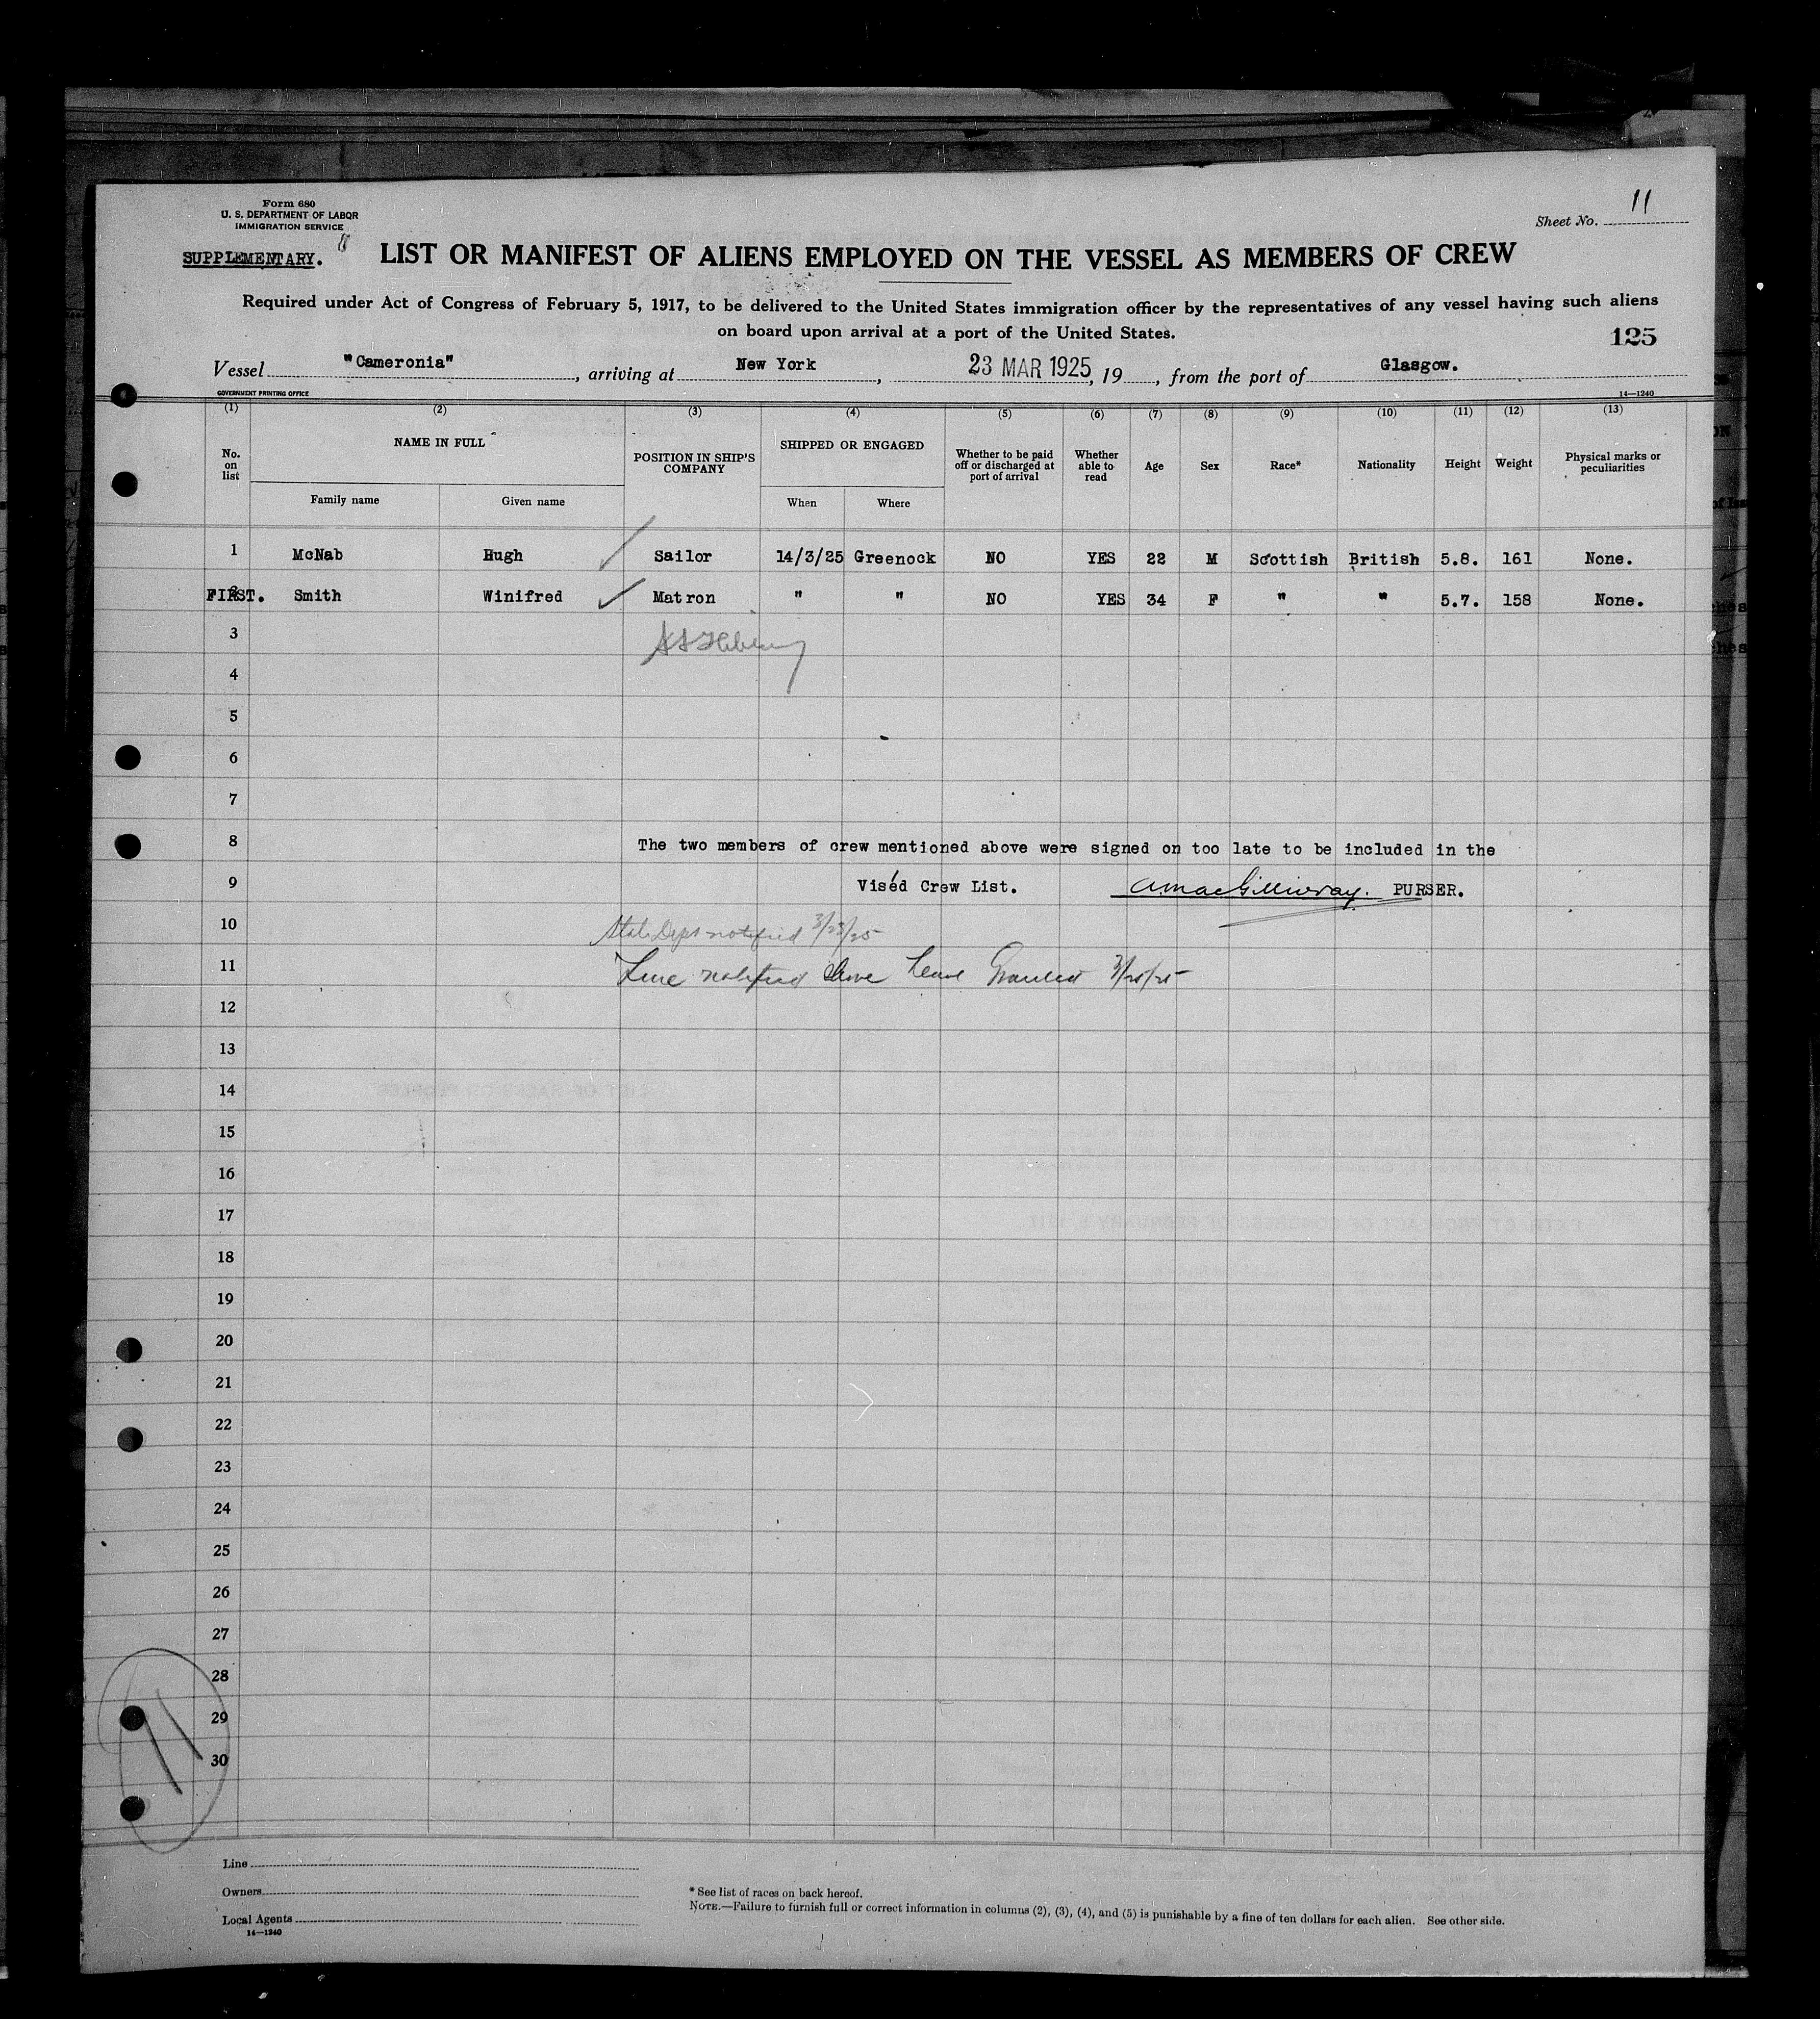 Form 680
U. S. DEPARTMENT OF LABOR
IMMIGRATION SERVICE
Sheet No. 11
SUPPLEMENTARY.
LIST OR MANIFEST OF ALIENS EMPLOYED ON THE VESSEL AS MEMBERS OF CREW
Required under Act of Congress of February 5, 1917, to be delivered to the United States immigration officer by the representatives of any vessel having such aliens
on board upon arrival at a port of the United States.
125
Vessel "Cameronia", arriving at New York, 23 MAR 1925, 19, from the port of Glasgow.
GOVERNMENT PRINTING OFFICE 14—1240
(1) (2) (3) (4) (5) (6) (7) (8) (9) (10) (11) (12) (13)
No. on list NAME IN FULL POSITION IN SHIP'S COMPANY SHIPPED OR ENGAGED Whether to be paid off or discharged at port of arrival Whether able to read Age Sex Race* Nationality Height Weight Physical marks or peculiarities
Family name Given name When Where
1 McNab Hugh Sailor 14/3/25 Greenock NO YES 22 M Scottish British 5.8. 161 None.
2 FIRST. Smith Winifred Matron " " NO YES 34 F " " 5.7. 158 None.
3
4
5
6
7
8 The two members of crew mentioned above were signed on too late to be included in the
9 Viséd Crew List. A MacGillivray. PURSER.
10 State Dept notified 3/23/25
11 Line notified Leave Granted
12
13
14
15
16
17
18
19
20
21
22
23
24
25
26
27
28
29
30
11
Line
Owners
Local Agents
14—1240
* See list of races on back hereof.
NOTE.—Failure to furnish full or correct information in columns (2), (3), (4), and (5) is punishable by a fine of ten dollars for each alien. See other side.